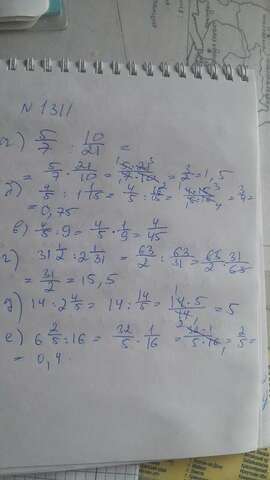 N 1311
а) 5/7 : 10/21 =
= 5/7 · 21/10 = 5·21/7·10 = 3/2 = 1,5
б) 4/5 : 1 1/15 = 4/5 : 16/15 = 4·15/5·16 = 3/4 =
= 0,75
в) 4/5 : 9 = 4/5 · 1/9 = 4/45
г) 31 1/2 : 2 1/31 = 63/2 : 63/31 = 63/2 · 31/63
= 31/2 = 15,5
д) 14 : 2 4/5 = 14 : 14/5 = 14·5/14 = 5
е) 6 2/5 : 16 = 32/5 · 1/16 = 32·1/5·16 = 2/5 =
= 0,4